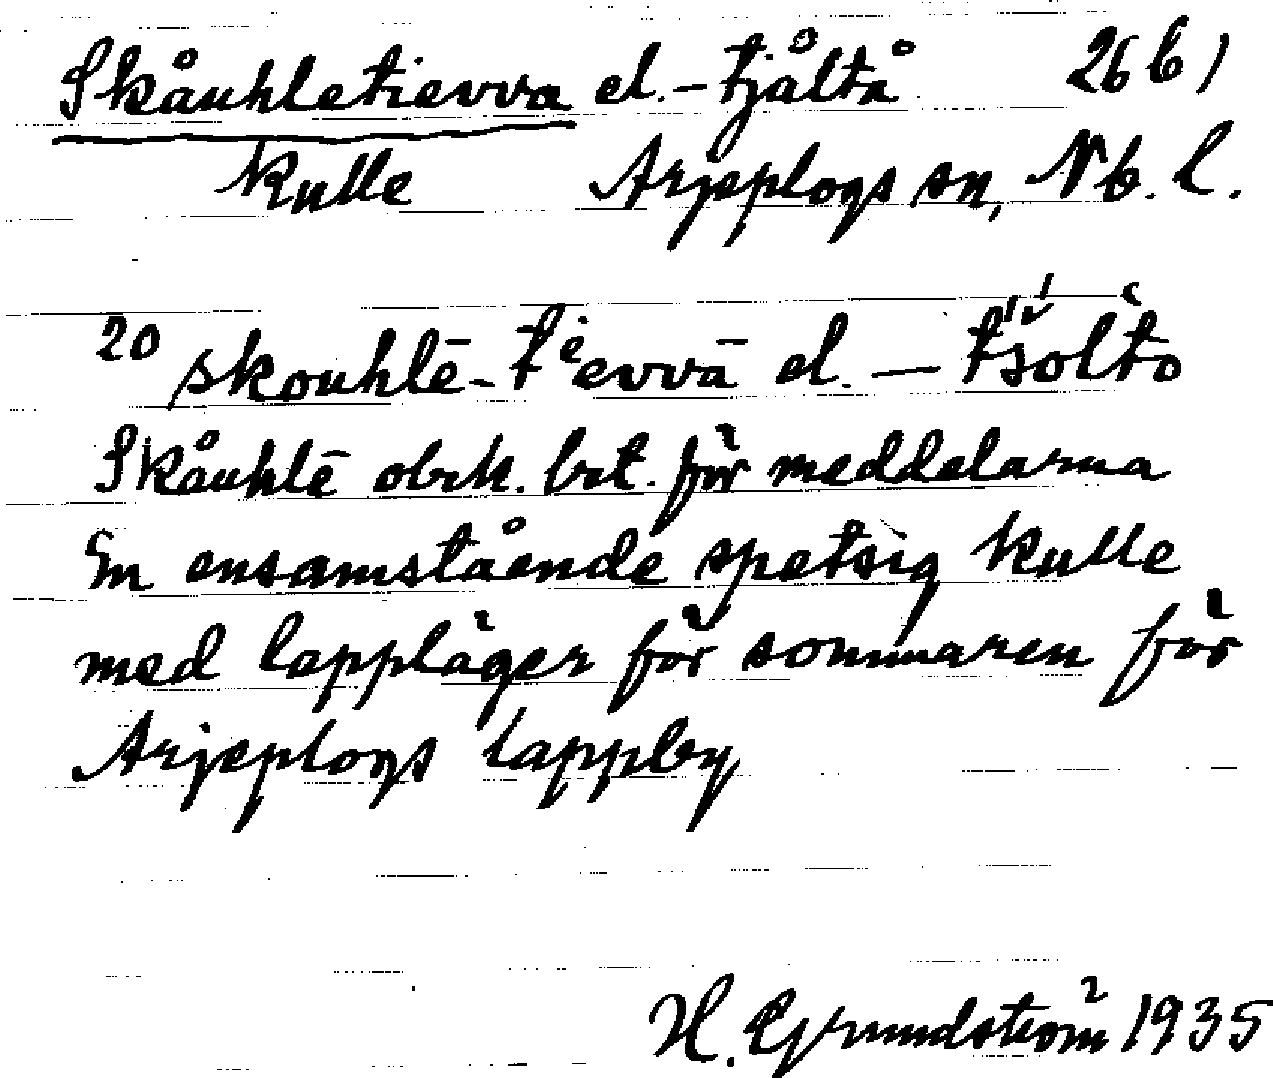 Skåuhletievva el. - tjåltå 26 b 1
kulle Arjeplogs sn, Nb. l.
20 skouhlē - tᵉevvā el. — tšòlto
Skåuhlē obek. bet. för meddelarna
En ensamstående spetsig kulle
med lappläger för sommaren för
Arjeplogs lappby
H. Grundström 1935